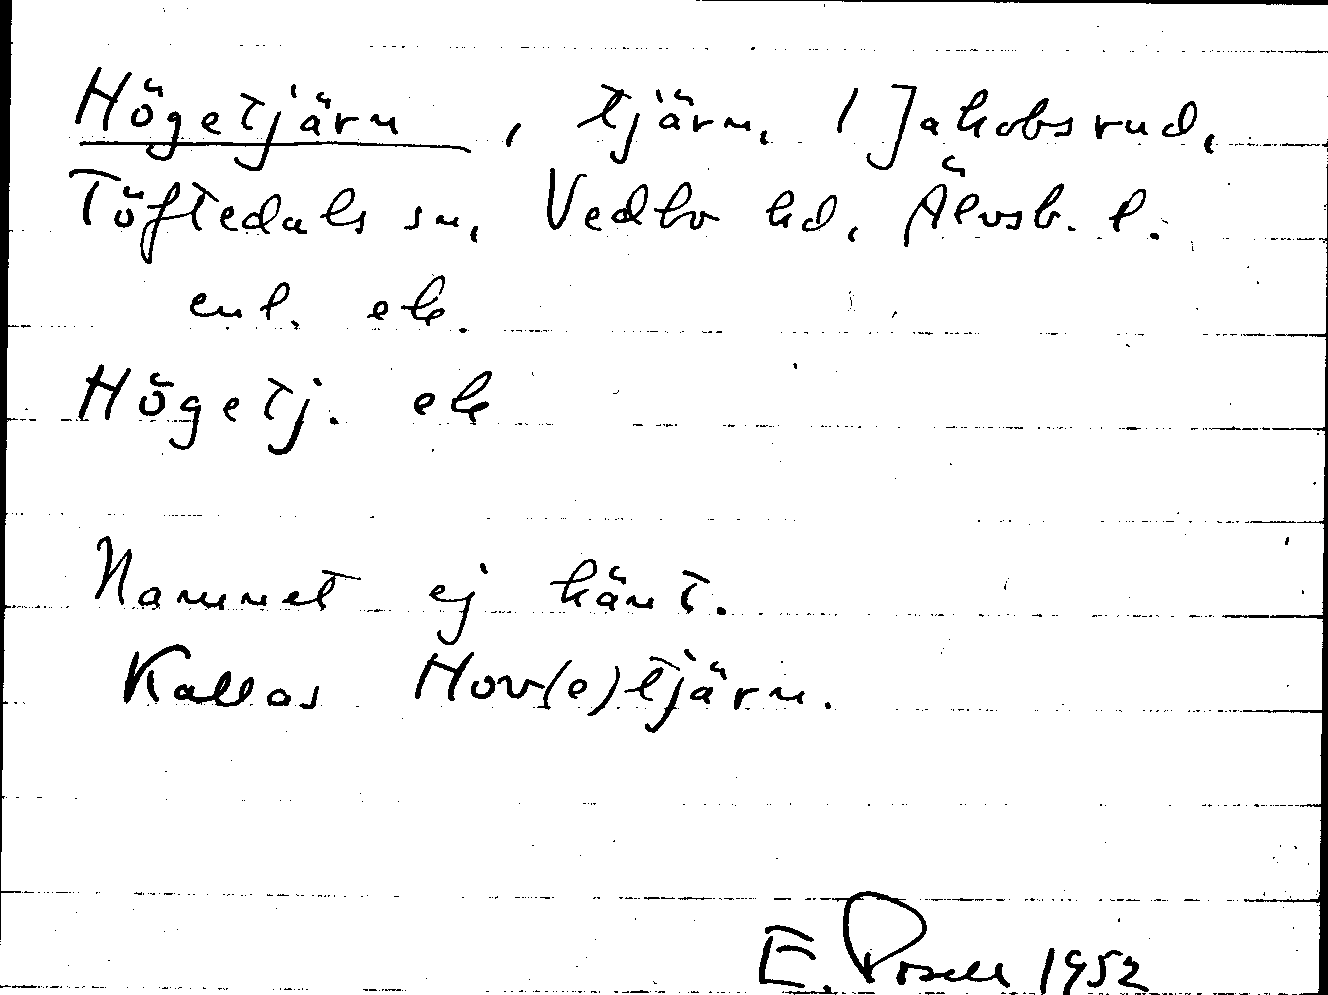 Högetjärn, tjärn, / Jakobsrud,
Töftedals sn, Vedbo hd, Älvsb. l.
enl. ek.
Högetj. ek
Namnet ej känt.
Kallas Hov(e)tjärn.
E. 1952